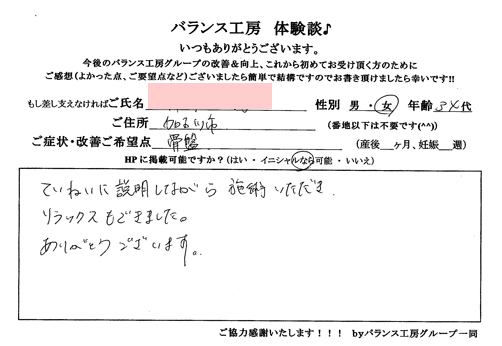 バランス工房 体験談♪
いつもありがとうございます。
今後のバランス工房グループの改善&向上、これから初めてお受け頂く方のために
ご感想(よかった点、ご要望点など)ございましたら簡単で結構ですのでお書き頂けましたら幸いです!!
もし差し支えなければご氏名 性別 男・女 年齢 3X代
ご住所 加古川市 (番地以下は不要です(^^))
ご症状・改善ご希望点 骨盤 (産後 ヶ月、妊娠 週)
HPに掲載可能ですか?(はい・イニシャルなら可能・いいえ)
ていねいに説明しながら施術いただき
リラックスもできました。
ありがとうございます。
ご協力感謝いたします!!! byバランス工房グループ一同